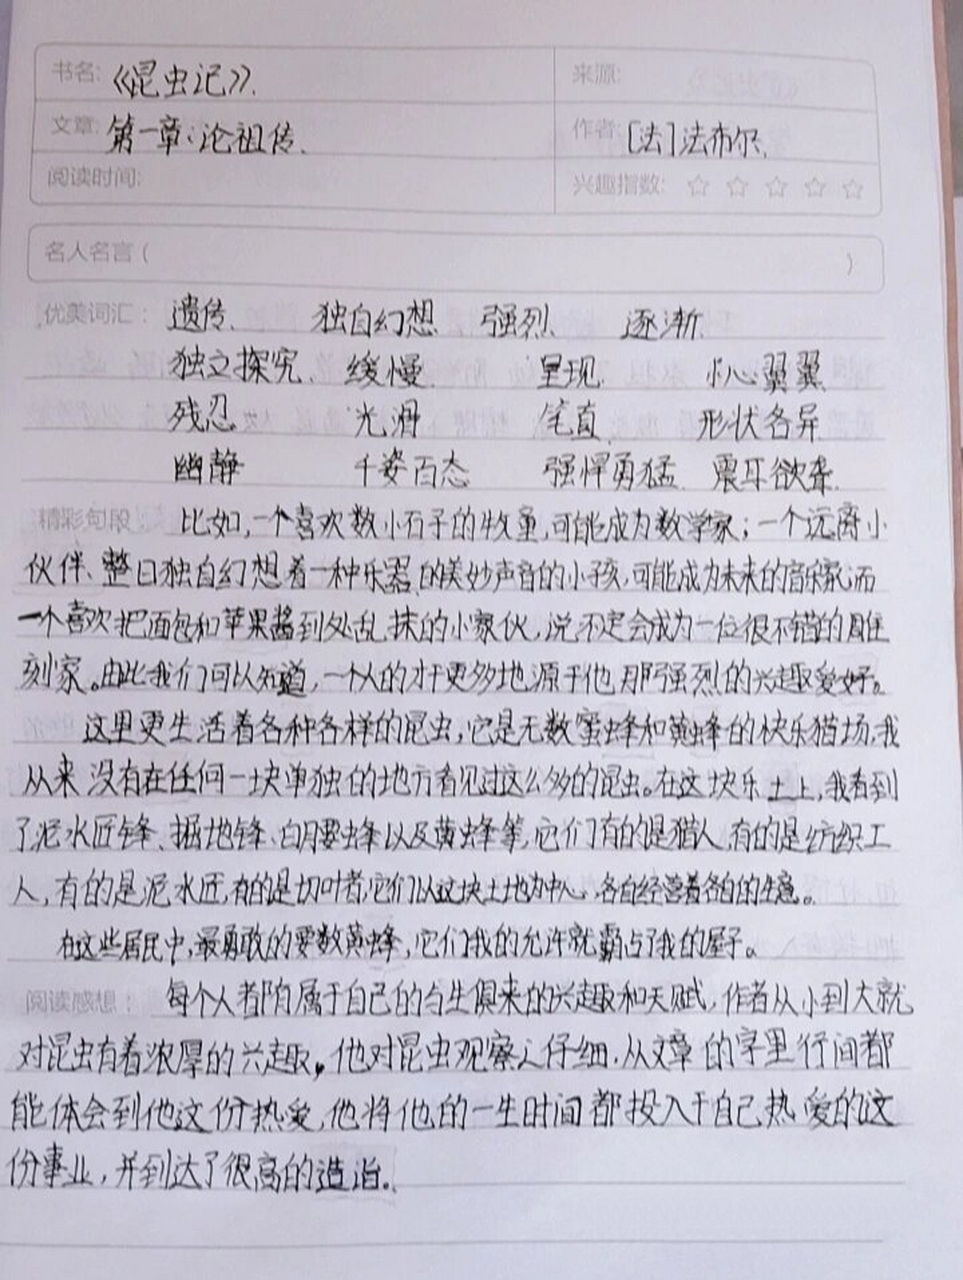 书名:《昆虫记》. 来源:
文章: 第一章:论祖传. 作者: [法]法布尔.
阅读时间: 兴趣指数: ☆ ☆ ☆ ☆ ☆
名人名言 ( )
优美词汇: 遗传. 独自幻想. 强烈. 逐渐.
独立探究. 缓慢. 呈现. 小心翼翼.
残忍 光滑 笔直 形状各异
幽静 千姿百态 强悍勇猛. 震耳欲聋.
精彩句段 比如,一个喜欢数小石子的牧童,可能成为数学家;一个远离小
伙伴、整日独自幻想着一种乐器的美妙声音的小孩,可能成为未来的音乐家;而
一个喜欢把面包和苹果酱到处乱抹的小家伙,说不定会成为一位很不错的雕
刻家。由此我们可以知道,一个人的才干更多地源于他那强烈的兴趣爱好。
这里更生活着各种各样的昆虫,它是无数蜜蜂和黄蜂的快乐猎场,我
从来没有在任何一块单独的地方看见过这么多的昆虫。在这块乐土上,我看到
了泥水匠蜂、掘地蜂、白腰虫蜂以及黄蜂等,它们有的是猎人,有的是纺织工
人,有的是泥水匠,有的是切叶者,它们以这块土地为中心,各自经营着各自的生意。
在这些居民中,最勇敢的要数黄蜂,它们我的允许就霸占了我的屋子。
阅读感想: 每个人都有属于自己的与生俱来的兴趣和天赋,作者从小到大就
对昆虫有着浓厚的兴趣,他对昆虫观察之仔细,从文章的字里行间都
能体会到他这份热爱,他将他的一生时间都投入于自己热爱的这
份事业,并到达了很高的造诣.